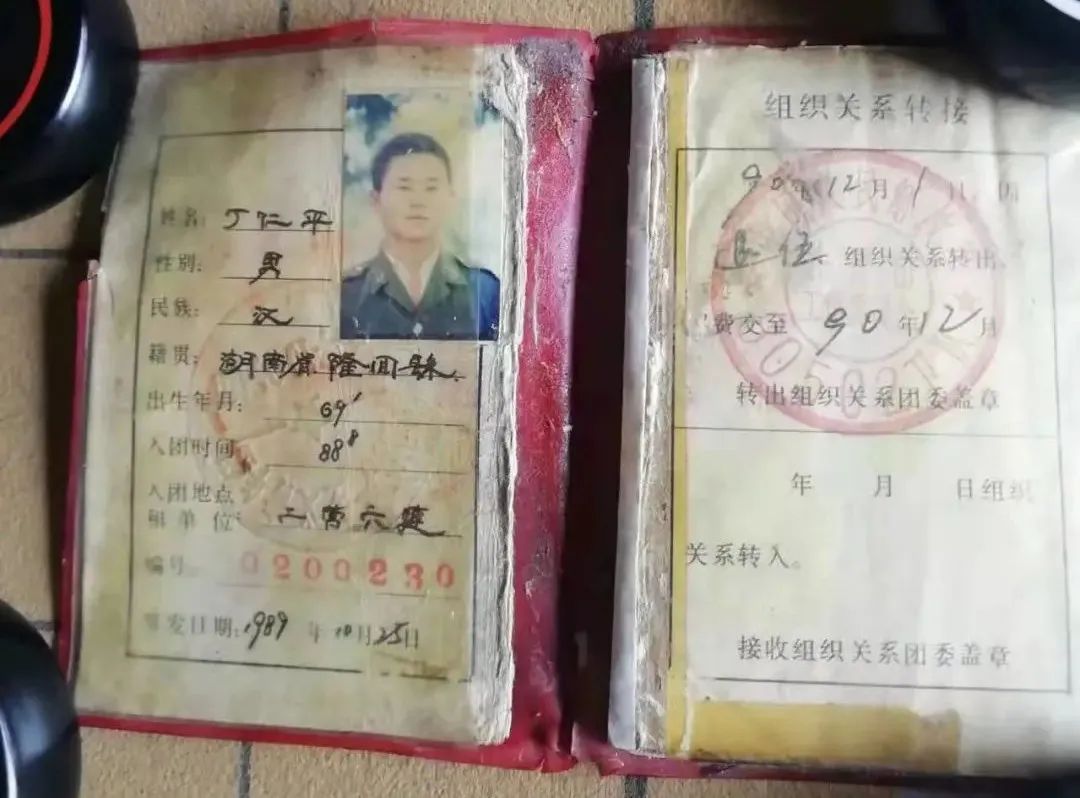 姓名: 丁仁平
性别: 男
民族: 汉
籍贯: 湖南省隆回县
出生年月: 69
入团时间 88 8
入团地点
单位 二营六连
编号 0200230
签发日期: 1989 年 10月 25日
组织关系转接
90年12月1日, 因
退伍 组织关系转出,
费交至 90年12月
转出组织关系团委盖章
年 月 日组织
关系转入。
接收组织关系团委盖章